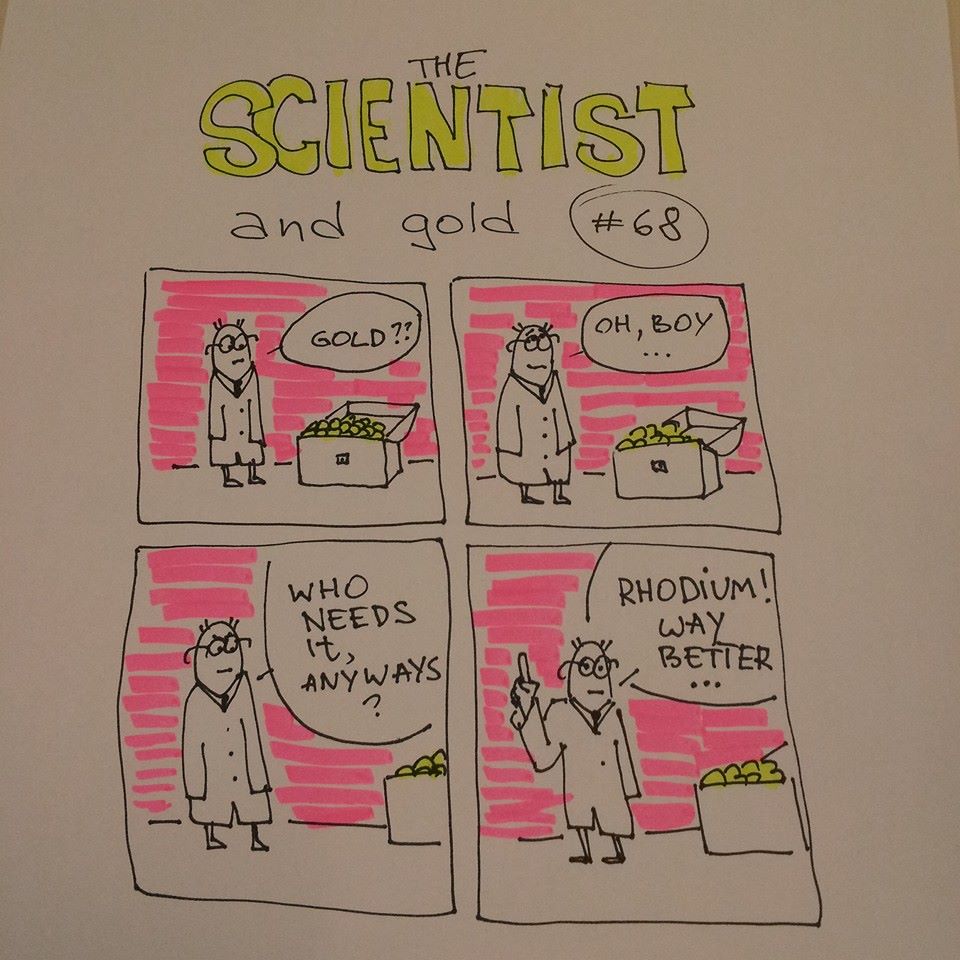 THE
SCIENTIST
and gold #68
GOLD??
OH, BOY
...
WHO
NEEDS
It,
ANYWAYS
?
RHODIUM!
WAY
BETTER
...